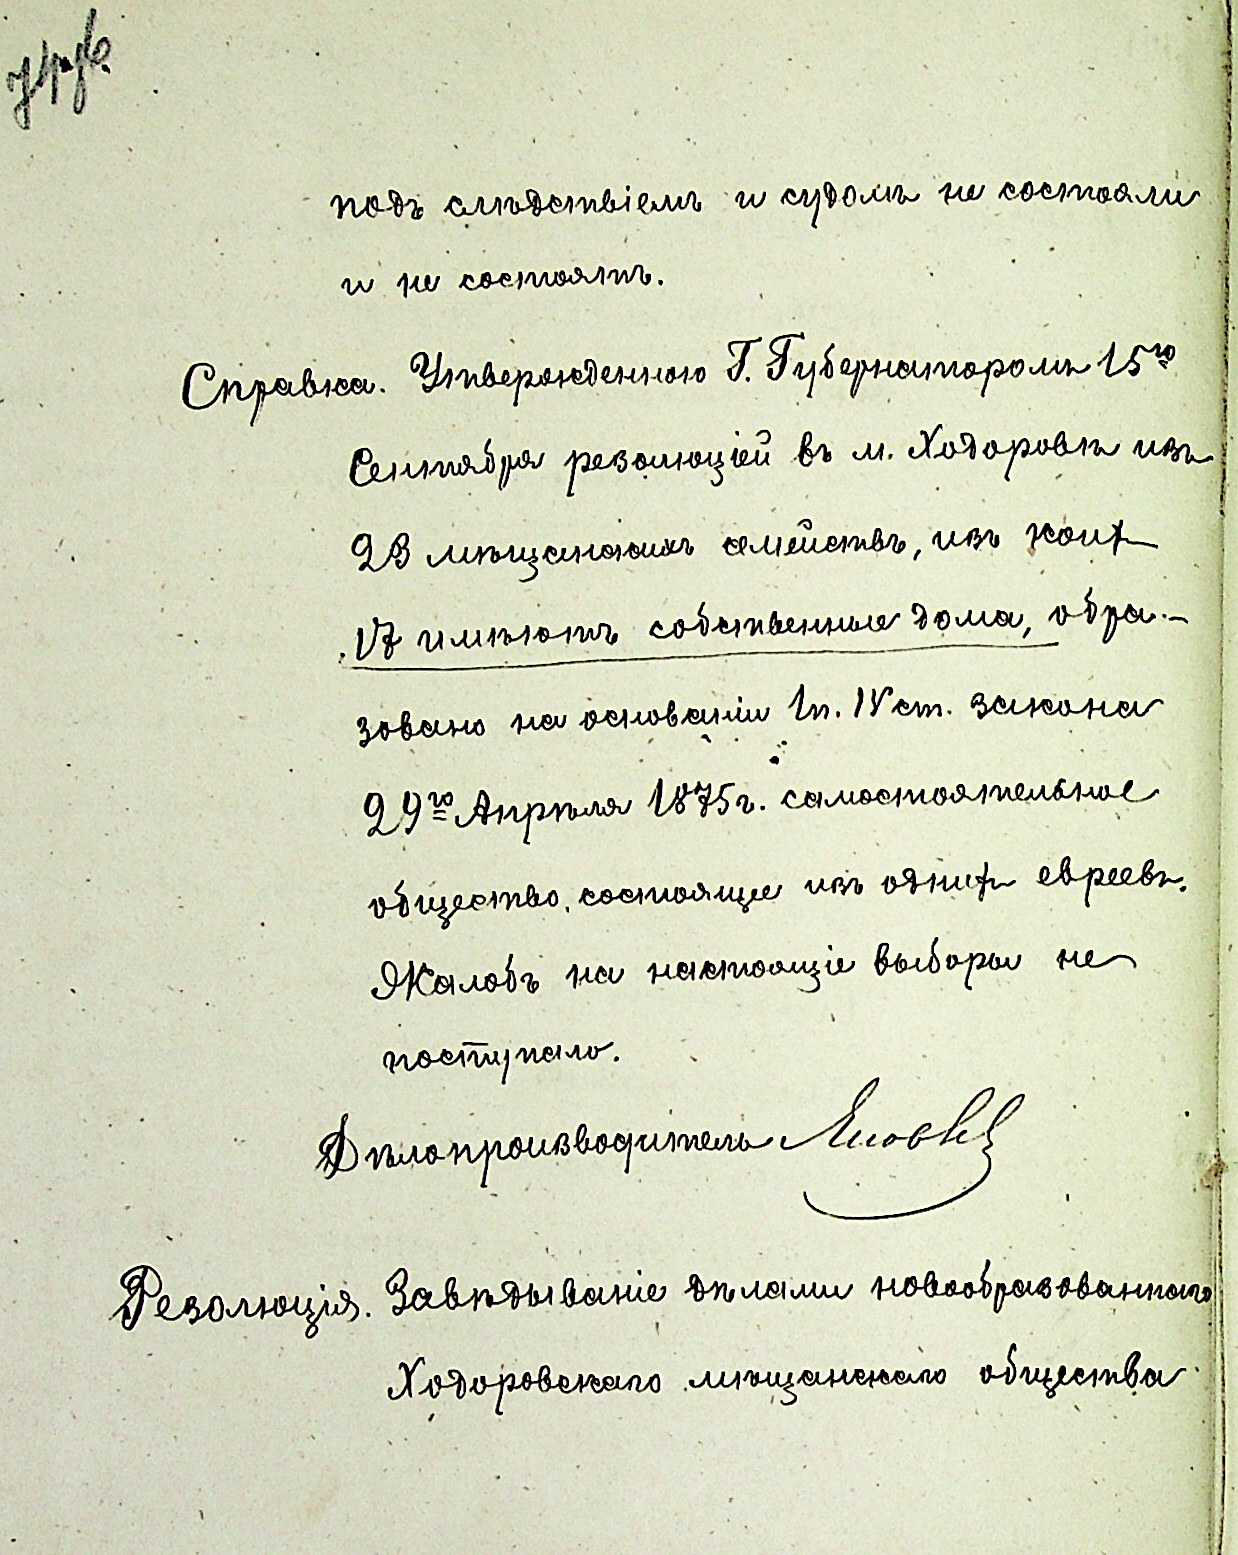 подъ слѣдствіемъ и судомъ не состояли
и не состоятъ.
Справка. Утвержденною Г. Губернаторомъ 15го
Сентября резолюціей въ м. Ходоровѣ изъ
23 мѣщанскихъ семействъ, изъ коихъ
17 имѣютъ собственные дома, обра-
зовано на основаніи 1 п. IV ст. закона
29го Апрѣля 1875 г. самостоятельное
общество, состоящее изъ однихъ евреевъ.
Жалобъ на настоящіе выборы не
поступало.
Дѣлопроизводитель
Резолюція. Завѣдываніе дѣлами новообразованнаго
Ходоровскаго мѣщанскаго общества